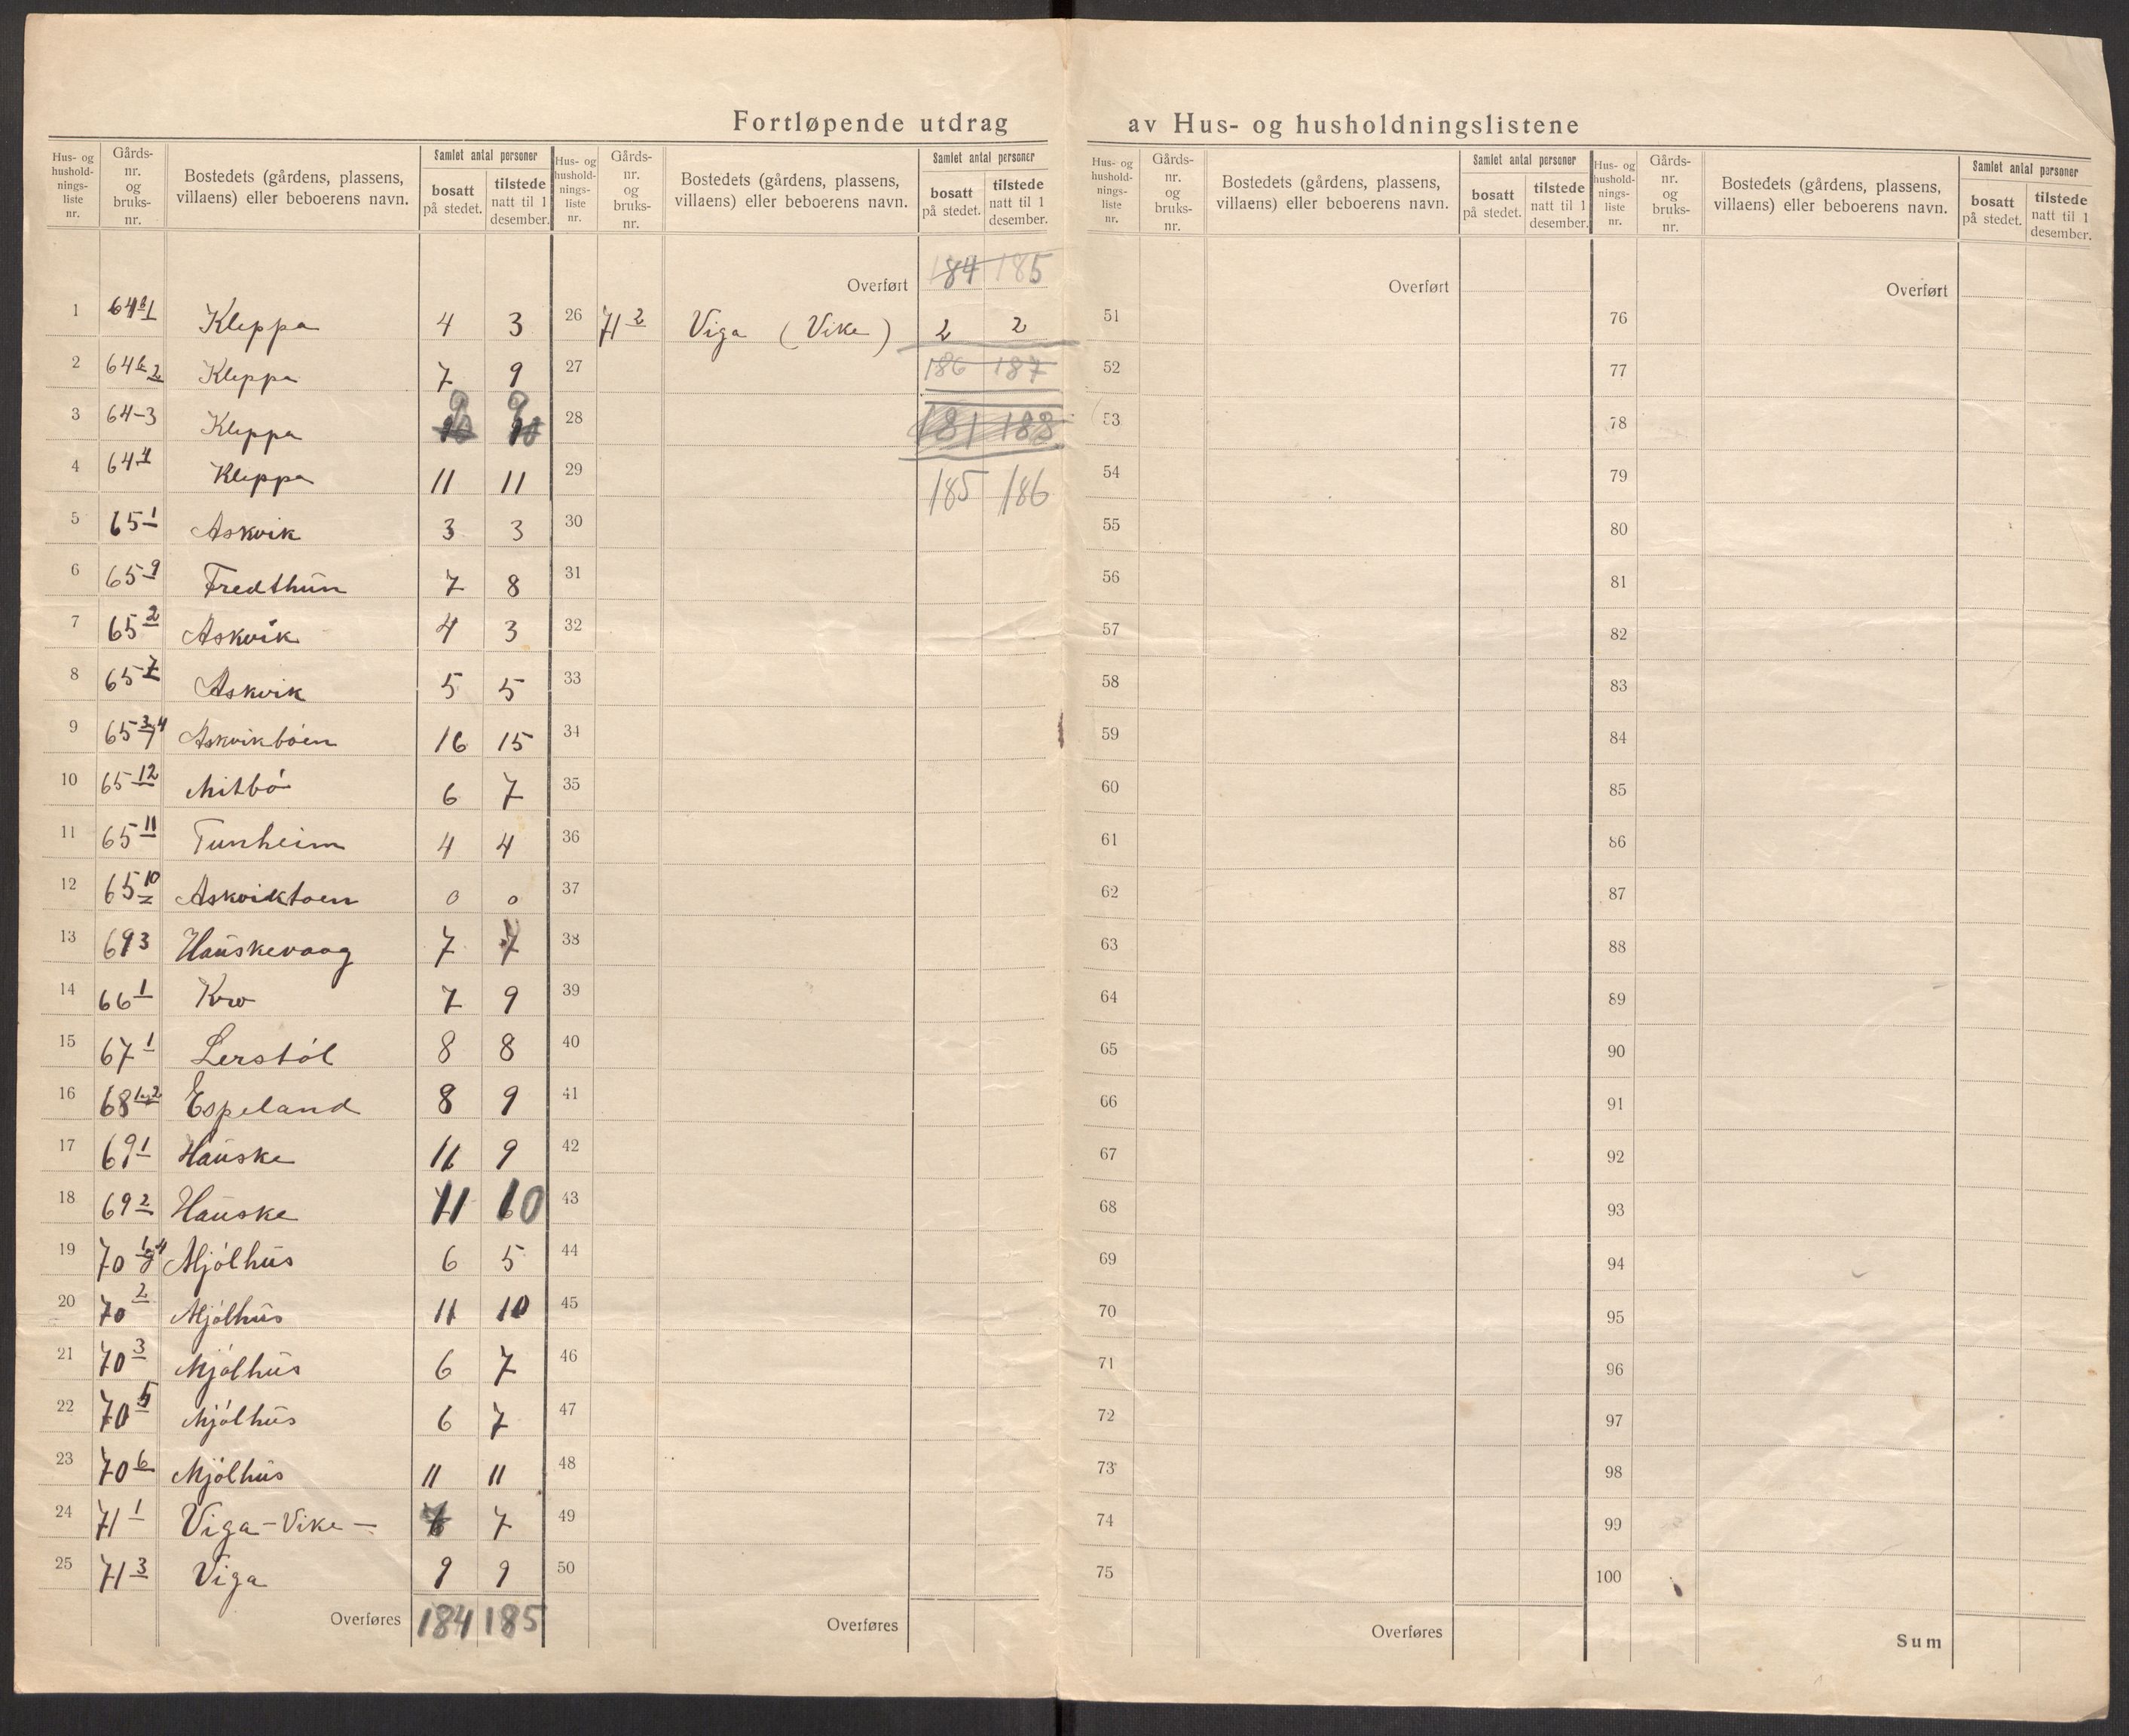 Fortløpende utdrag av Hus- og husholdningslistene
Hus- og husholdningsliste nr. | Gårds-nr. og bruks-nr. | Bostedets (gårdens, plassens, villaens) eller beboerens navn. | Samlet antal personer bosatt på stedet. | tilstede natt til 1 desember.
1 64 1 Kleppa 4 3
2 64 2 Kleppa 7 9
3 64-3 Kleppa 9 9
4 64 4 Kleppa 11 11
5 65 1 Askvik 3 3
6 65 9 Fredthun 7 8
7 65 2 Askvik 4 3
8 65 7 Askvik 5 5
9 65 3 4 Askvikböen 16 15
10 65 12 Mitbö 6 7
11 65 11 Tunheim 4 4
12 65 10 0 0
13 69 3 Hauskevaag 7 7
14 66 1 Kro 7 9
15 67 1 Lerstöl 8 8
16 68 1-2 Espeland 8 9
17 69 1 Hauske 11 9
18 69 2 Hauske 11 10
19 70 1 og 4 Mjölhus 6 5
20 70 2 Mjölhus 11 10
21 70 3 Mjölhus 6 7
22 70 5 Mjölhus 6 7
23 70 6 Mjölhus 11 11
24 71 1 Viga-Vike- 7
25 71 3 Viga 9 9
Overføres 184 185
Hus- og husholdningsliste nr. | Gårds-nr. og bruks-nr. | Bostedets (gårdens, plassens, villaens) eller beboerens navn. | Samlet antal personer bosatt på stedet. | tilstede natt til 1 desember.
Overført 184 185
26 71 2 Viga (Vike) 2 2
27 186 187
28 181 188
29 185 186
30
31
32
33
34
35
36
37
38
39
40
41
42
43
44
45
46
47
48
49
50
Overføres
Hus- og husholdningsliste nr. | Gårds-nr. og bruks-nr. | Bostedets (gårdens, plassens, villaens) eller beboerens navn. | Samlet antal personer bosatt på stedet. | tilstede natt til 1 desember.
Overført
51
52
53
54
55
56
57
58
59
60
61
62
63
64
65
66
67
68
69
70
71
72
73
74
75
Overføres
Hus- og husholdningsliste nr. | Gårds-nr. og bruks-nr. | Bostedets (gårdens, plassens, villaens) eller beboerens navn. | Samlet antal personer bosatt på stedet. | tilstede natt til 1 desember.
Overført
76
77
78
79
80
81
82
83
84
85
86
87
88
89
90
91
92
93
94
95
96
97
98
99
100
Sum